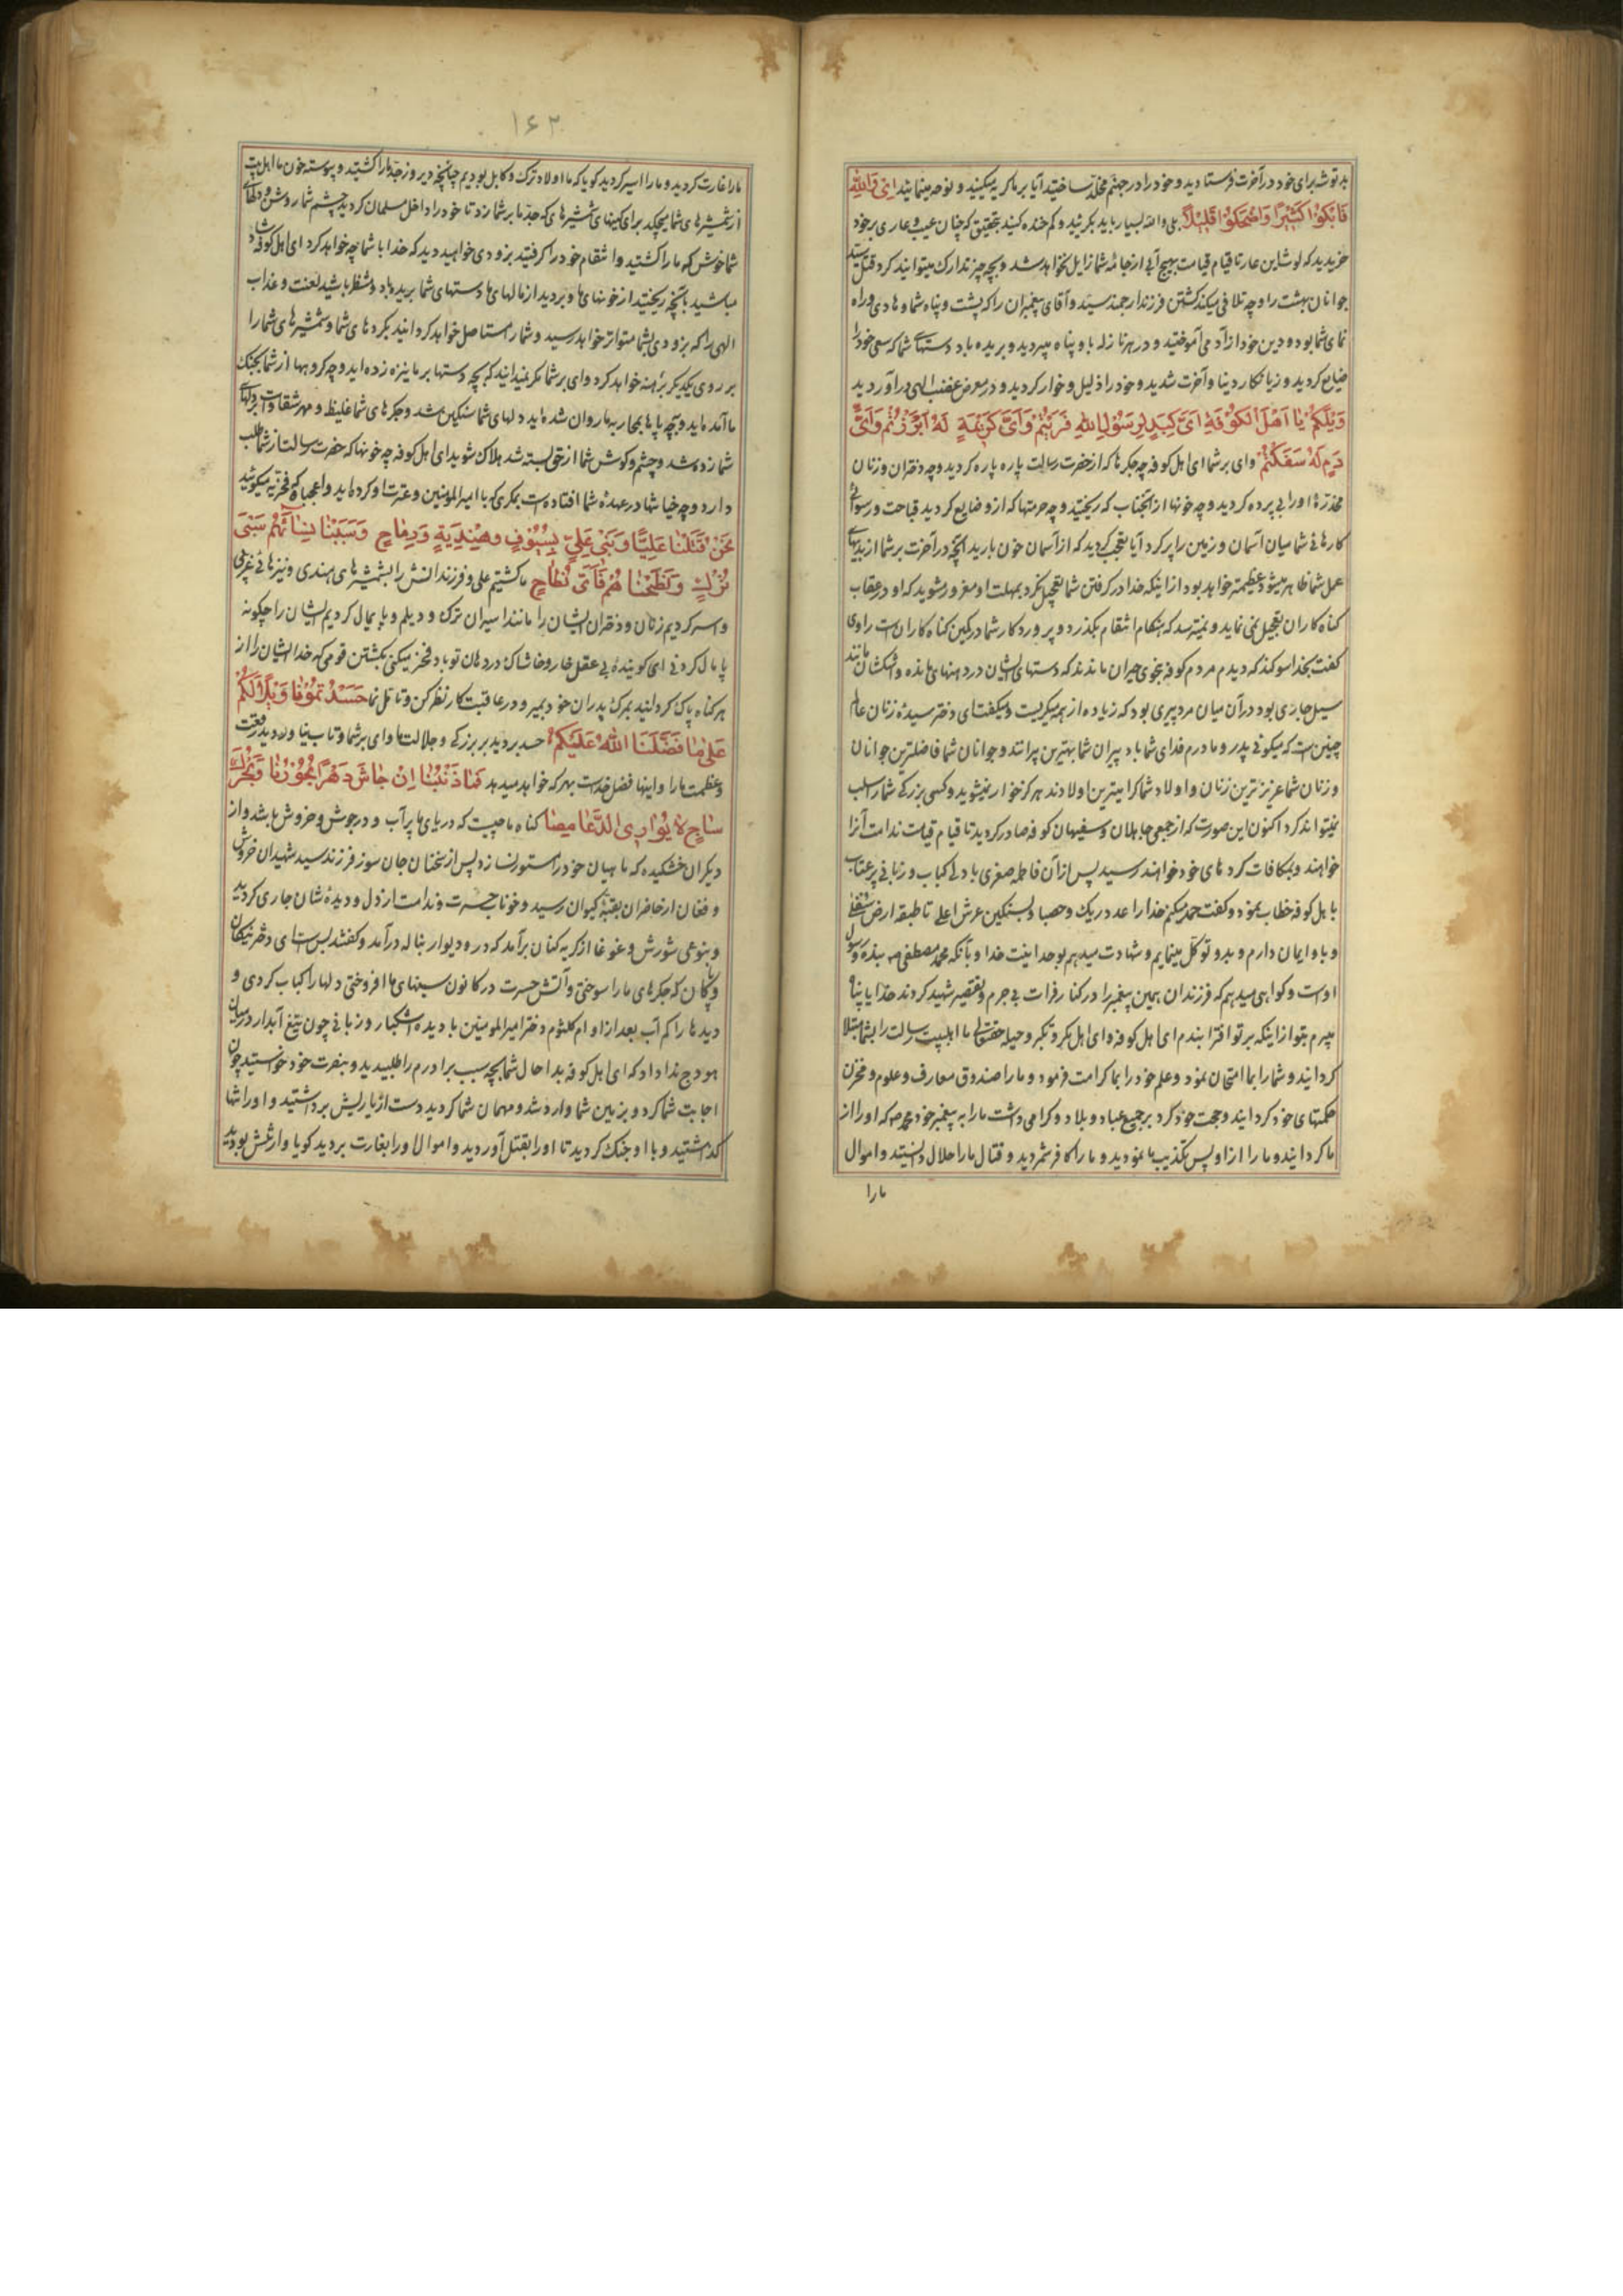 بد توشه برای خود در آخرت فرستادید و خود را در جهنم مخلد ساختید آیا بر ما گریه میکنید و نوحه مینمائید ای والله
فابکوا کثیرا واضحکوا قلیلا بلی والله بسیار باید بگریید و کم خنده کنید بتحقیق که چنان عیب و عاری بر خود
خریدید که لوث این عار تا قیام قیامت بهیچ آبی از جامه شما زایل نخواهد شد و بچه چیز تدارک میتوانید کرد قتل سید
جوانان بهشت را و چه تلافی میکند کشتن فرزند ارجمند سید و آقای پیغمبران را که پشت و پناه شما و هادی و راه
نمای شما بود و دین خود از او می آموختید و در هر نازله باو پناه میبردید و بریده باد دستهای شما که سعی خود را
ضایع کردید و زیانکار دنیا و آخرت شدید و خود را ذلیل و خوار کردید و در معرض غضب الهی در آوردید
ویلکم یا اهل الکوفة ای کبد لرسول الله فریتم وای کریمة له ابرزتم وای
دم له سفکتم وای بر شما ای اهل کوفه چه جگرها که از حضرت رسالت پاره پاره کردید و چه دختران و زنان
مخدره او را بی پرده کردید و چه خونها از آنجناب که ریختید و چه حرمتها که ازو ضایع کردید قباحت و رسوائی
کارهای شما میان آسمان و زمین را پر کرد آیا تعجب کردید که از آسمان خون بارید آنچه در آخرت بر شما از بدیهای
عمل شما ظاهر میشود عظیمتر خواهد بود از اینکه خدا در گرفتن شما تعجیل نکرد بمهلت او مغرور مشوید که او در عقاب
گناه کاران تعجیل نمی نماید و نمیترسد که هنگام انتقام بگذرد و پروردگار شما در کمین گناه کارانست راوی
گفت بخدا سوگند که دیدم مردم کوفه بنحوی حیران ماندند که دستهای ایشان در دهنها مانده و اشکشان مانند
سیل جاری بود در آن میان مرد پیری بود که زیاده از همه میگریست و میگفت ای دختر سیده زنان عالم
چنین است که میگوئی پدر و مادرم فدای شما باد پیران شما بهترین پیرانند و جوانان شما فاضلترین جوانان
و زنان شما عزیزترین زنان و اولاد شما گرامیترین اولادند هرگز خوار نمیشوید و کسی بزرگی شما را سلب
نمیتواند کرد اکنون این صورت که از جمعی جاهلان و سفیهان کوفه صادر گردید تا قیام قیامت ندامت آنرا
خواهند و بمکافات کردهای خود خواهند رسید پس از آن فاطمه صغری با دلی کباب و زبانی پر عتاب
با اهل کوفه خطاب نموده و گفت حمد میکنم خدا را عدد ریک و حصبا و بسنگین عرش اعلی تا طبقه ارض سفلی
و باو ایمان دارم و بدو توکل مینمایم و شهادت میدهم بوحدانیت خدا و بآنکه محمد مصطفی بنده و رسول
اوست و گواهی میدهم که فرزندان همین پیغمبر را در کنار فرات بی جرم و تقصیر شهید کردند خدایا پناه
میبرم بتو از اینکه بر تو افترا بندم ای اهل کوفه و ای اهل مکر و تکبر و حیله حقتعالی ما اهلبیت رسالت را بشما مبتلا
گردانید و شما را بما امتحان نمود و علم خود را بما کرامت فرمود و ما را صندوق معارف و علوم و مخزن
حکمتهای خود گردانید و حجت خود کرد بر جمیع عباد و بلاد و گرامی داشت ما را به پیغمبر خود محمد که او را از
ما گردانید و ما را از او پس تکذیب ما نمودید و ما را کافر شمردید و قتال ما را حلال دانستید و اموال
ما را
۱۶۲
ما را غارت کردید و ما را اسیر کردید گویا که ما اولاد ترک و کابل بودیم چنانچه دیروز جد ما را کشتید و پیوسته خون ما اهل بیت
از شمشیرهای شما میچکد برای کینهای که جد ما بر شما زد تا خود را داخل مسلمان کردید چشم شما روشن و دلهای
شما خوش که ما را کشتید و انتقام خود را گرفتید بزودی خواهید دید که خدا با شما چه خواهد کرد ای اهل کوفه شاد
مباشید بآنچه ریختید از خونهای ما و بردید از مالهای ما دستهای شما بریده باد و منتظر باشید لعنت و عذاب
الهی را که بزودی بشما متواتر خواهد رسید و شما را مستاصل خواهد گردانید بکردهای شما و شمشیرهای شما را
بر روی یکدیگر برهنه خواهد کرد وای بر شما مگر نمیدانید که بچه دستها بر ما نیزه زده اید و چه گروهها از شما بجنگ
ما آمده اید و بچه پاها بمحاربه ما روان شده اید دلهای شما سنگین شد و جگرهای شما غلیظ و مهر شقاوت بر دلهای
شما زده شد و چشم و گوش شما از حق بسته شد هلاک شوید ای اهل کوفه چه خونها که حضرت رسالت از شما طلب
دارد و چه در عهده شما افتاده است بمکری که با امیرالمومنین و عترت او کرده اید و فخریه میگوئید
نحن قتلنا علیا و بنی علی بسیوف هندیة و رماح وسبینا نسائهم سبی
ترک ونطحناهم فای نطاح ما کشتیم علی و فرزندانش را بشمشیرهای هندی و نیزهای
و اسیر کردیم زنان و دختران ایشان را مانند اسیران ترک و دیلم و پایمال کردیم ایشان را چگونه
پامال کردنی ای گوینده بی عقل خار و خاشاک در دهان تو باد فخر میکنی بکشتن قومی که خدا ایشان را از
هر گناه پاک گردانید بمرگ پدران خود بمیر و در عاقبت کار نظر کن و تامل نما حسدتمونا ویلا لکم
علی ما فضلنا الله علیکم حسد بردید بر بزرگی و جلالت ما وای بر شما و تاب نیاوردید رفعت
و عظمت ما را و اینها فضل خداست بهر که خواهد میدهد فما ذنبنا ان جاش دهرا بحورنا وبحرک
ساج لا یواری الدعامصا گناه ما چیست که دریای ما پر آب و در جوش و خروش باشد و از
دیگران خشکیده که ماهیان خود را مستور نسازد پس از سخنان جان سوز فرزند سید شهیدان خروش
و فغان از حاضران بقبه کیوان رسید و خوناب حسرت و ندامت از دل و دیده شان جاری گردید
و بنوعی شورش و غوغا از گریه کنان برآمد که در و دیوار بناله در آمد و گفتند بس است ای دختر نیکان
و پاکان که جگرهای ما را سوختی و آتش حسرت در کانون سینهای ما افروختی و دلها را کباب کردی و
دیدها را کم آب بعد از او ام کلثوم دختر امیرالمومنین با دیده اشکبار و زبانی چون تیغ آبدار در میان
هودج ندا داد که ای اهل کوفه بدا حال شما بچه سبب برادرم را طلبیدید و بنصرت خود خواستید چون
اجابت شما کرد و بزمین شما وارد شد و مهمان شما گردید دست از یاریش برداشتید و او را تنها
گذاشتید و با او جنگ کردید تا او را بقتل آوردید و اموال او را بغارت بردید گویا وارثش بودید